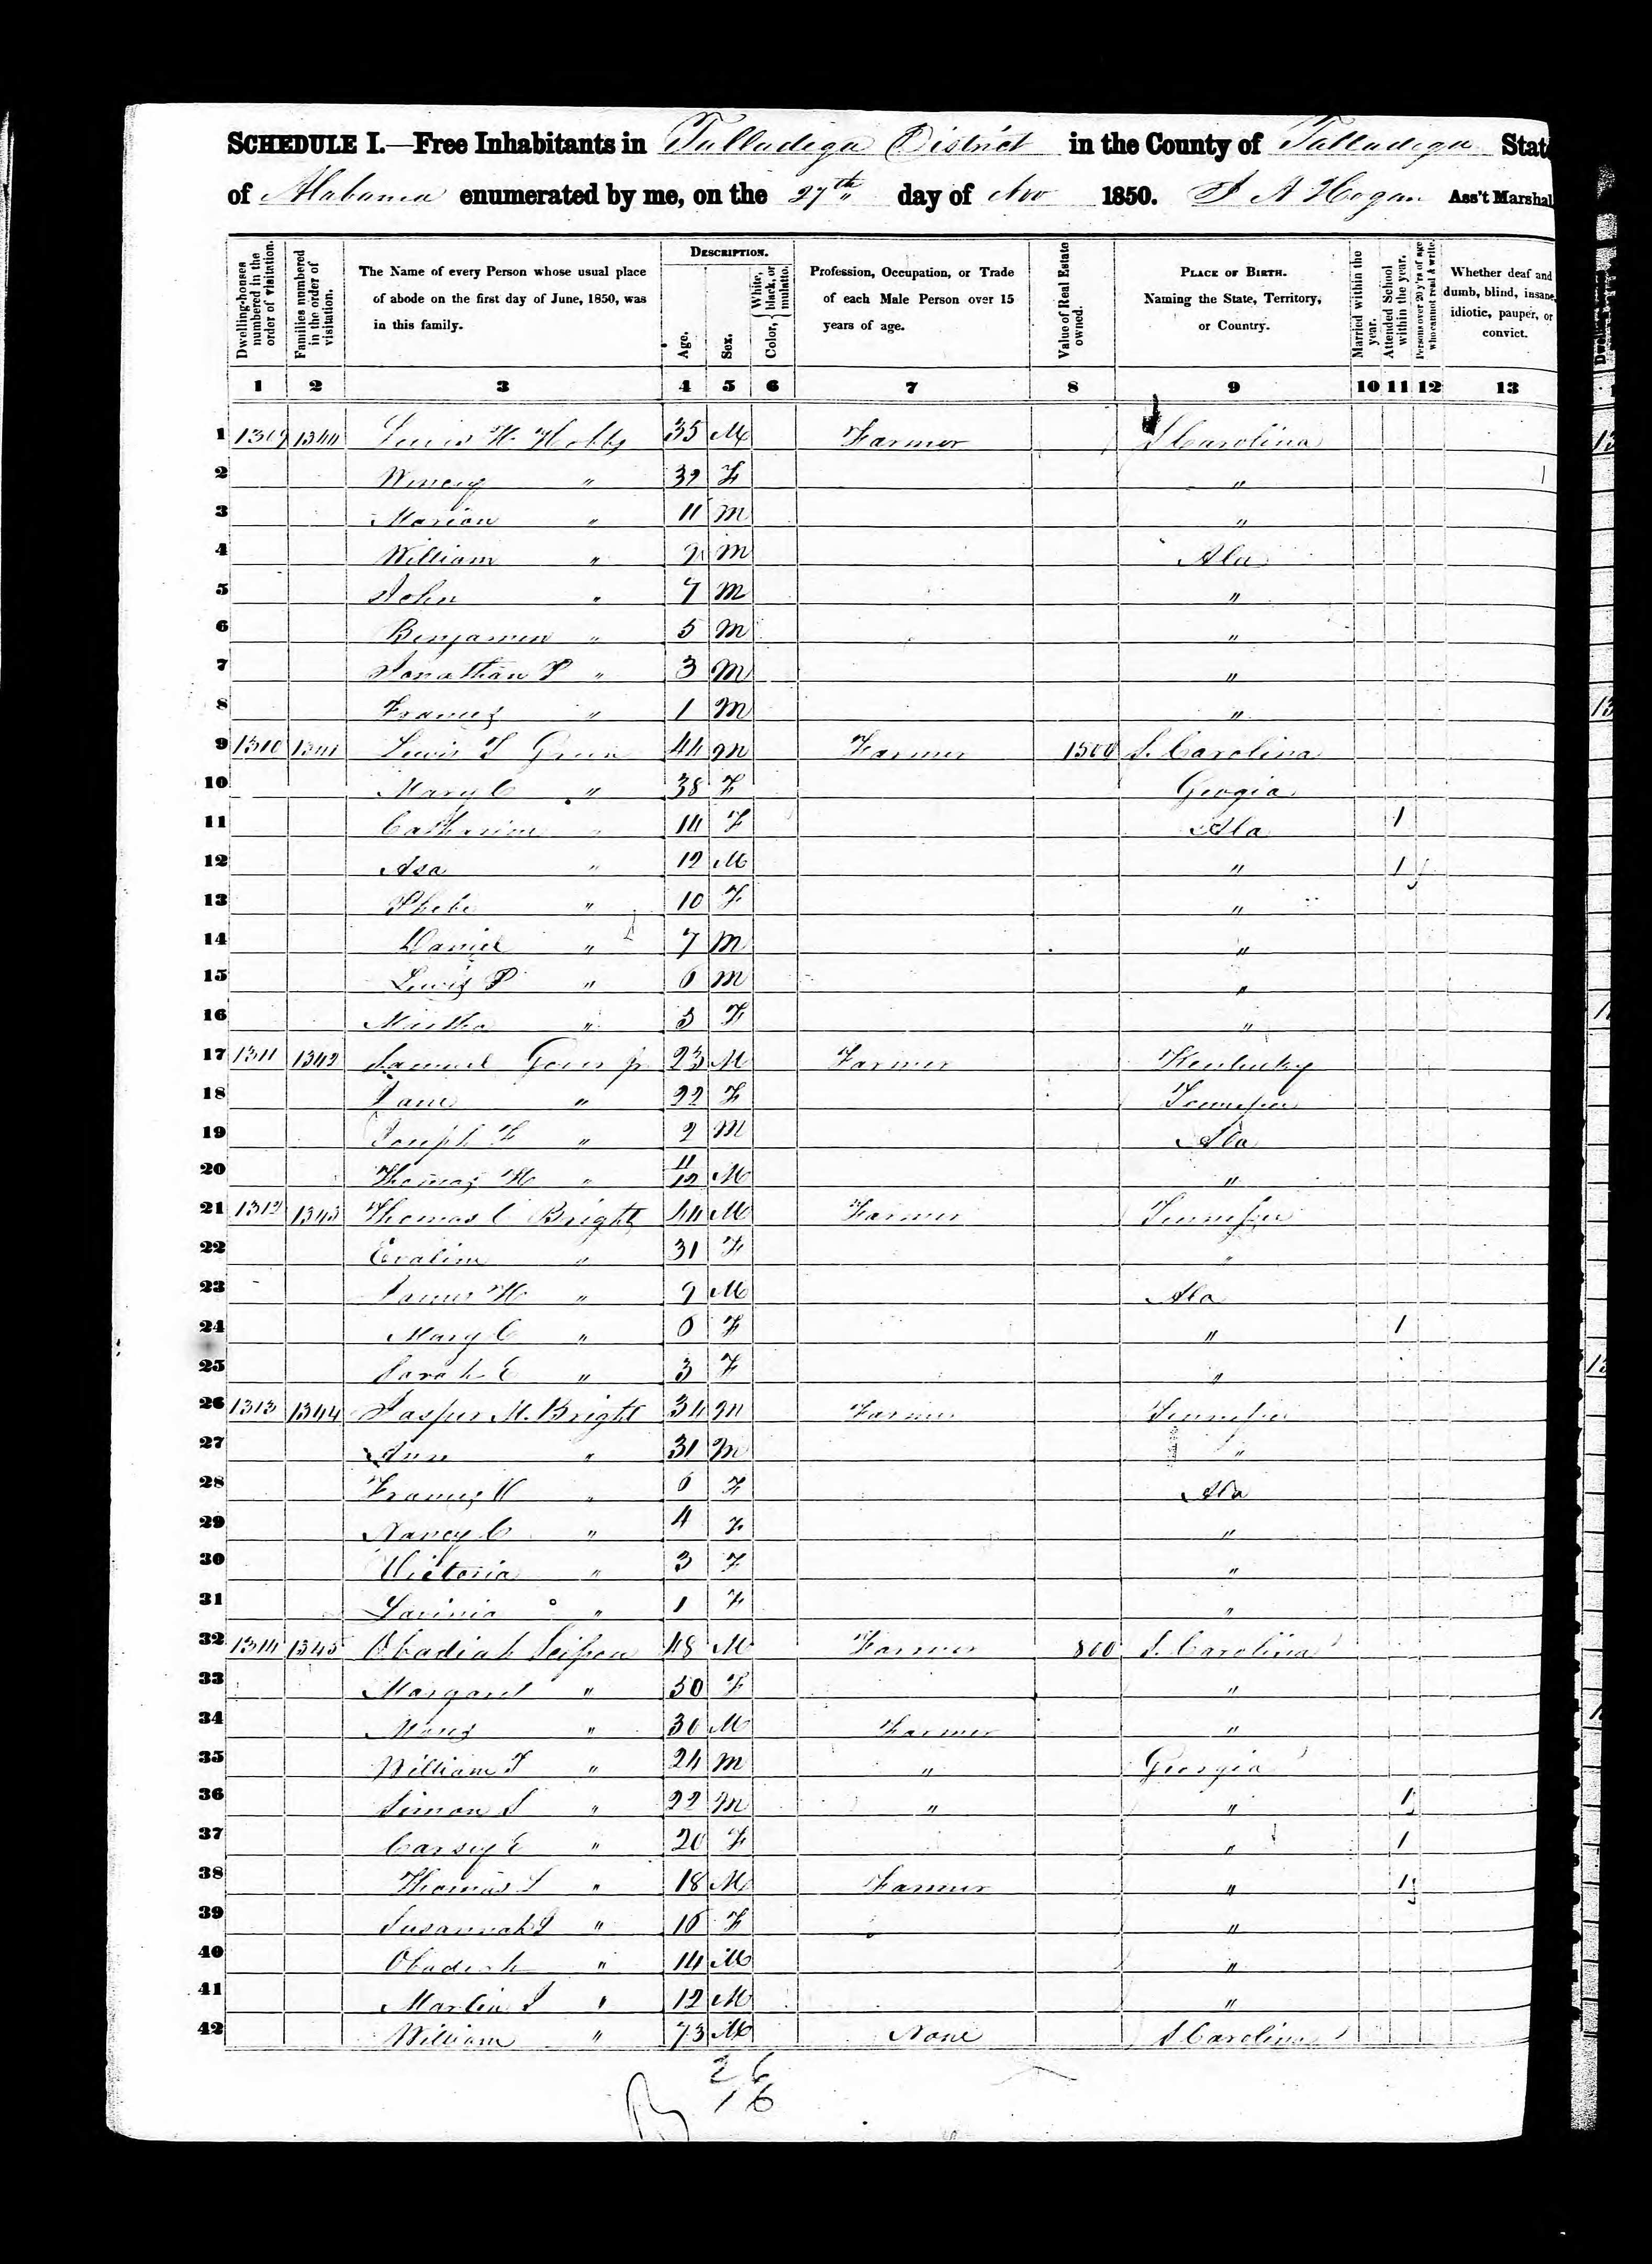 SCHEDULE I.—Free Inhabitants in Talladega District in the County of Talladega State
of Alabama enumerated by me, on the 27th day of Nov 1850. J A Hogan Ass't Marshal
Dwelling-houses numbered in the order of visitation.
Families numbered in the order of visitation.
The Name of every Person whose usual place of abode on the first day of June, 1850, was in this family.
DESCRIPTION.
Age.
Sex.
Color, { White, black, or mulatto.
Profession, Occupation, or Trade of each Male Person over 15 years of age.
Value of Real Estate owned.
PLACE OF BIRTH. Naming the State, Territory, or Country.
Married within the year.
Attended School within the year.
Persons over 20 y'rs of age who cannot read & write.
Whether deaf and dumb, blind, insane, idiotic, pauper, or convict.
1 2 3 4 5 6 7 8 9 10 11 12 13
1 1309 1340 Lewis H Hobbs 35 M Farmer S Carolina
2 " 32 F "
3 Marion " 11 M "
4 William " 9 M Ala
5 John " 7 M "
6 Benjamin " 5 M "
7 Jonathan P " 3 M "
8 Francis " 1 M "
9 1310 1341 Lewis S Green 44 M Farmer 1500 S. Carolina
10 Mary C " 38 F Geogia
11 Catharine " 14 F Ala 1
12 Asa " 12 M " 1
13 Phebe " 10 F "
14 Daniel " 7 M "
15 Lewis P " 6 M "
16 Martha " 3 F "
17 1311 1342 Samuel Jr 23 M Farmer Kentucky
18 Jane " 22 F Tennessee
19 Joseph F " 2 M Ala
20 Thomas H " 11/12 M "
21 1312 1343 Thomas C Bright 44 M Farmer Tennessee
22 Evaline " 31 F "
23 James H " 9 M Ala
24 Mary C " 6 F " 1
25 Sarah E " 3 F "
26 1313 1344 Jasper M. Bright 34 M Farmer Tennessee
27 Ann " 31 M "
28 Francis " 6 F Ala
29 Nancy C " 4 F "
30 Victoria " 3 F "
31 Lavinia " 1 F "
32 1314 1345 Obadiah 48 M Farmer 800 S. Carolina
33 Margaret " 50 F "
34 " 30 M Farmer "
35 William T " 24 M " Georgia
36 Simon S " 22 M " " 1
37 E " 20 F " 1
38 Thomas S " 18 M Farmer " 1
39 Susannah S " 16 F "
40 Obadiah " 14 M "
41 Martin S " 12 M "
42 William " 73 M None S Carolina
26
16